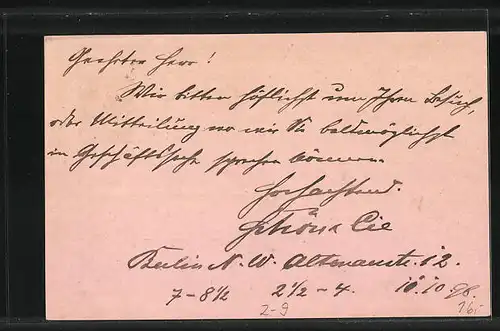 Geehrter Herr!
Wir bitten höflichst um Ihren Besuch,
oder Mitteilung wo wir Sie baldmöglichst
in Geschäftssache sprechen können.
Hochachtend.
& Cie
Berlin N. W. 12.
7-8½ 2½-4. 10.10.98.
2-9